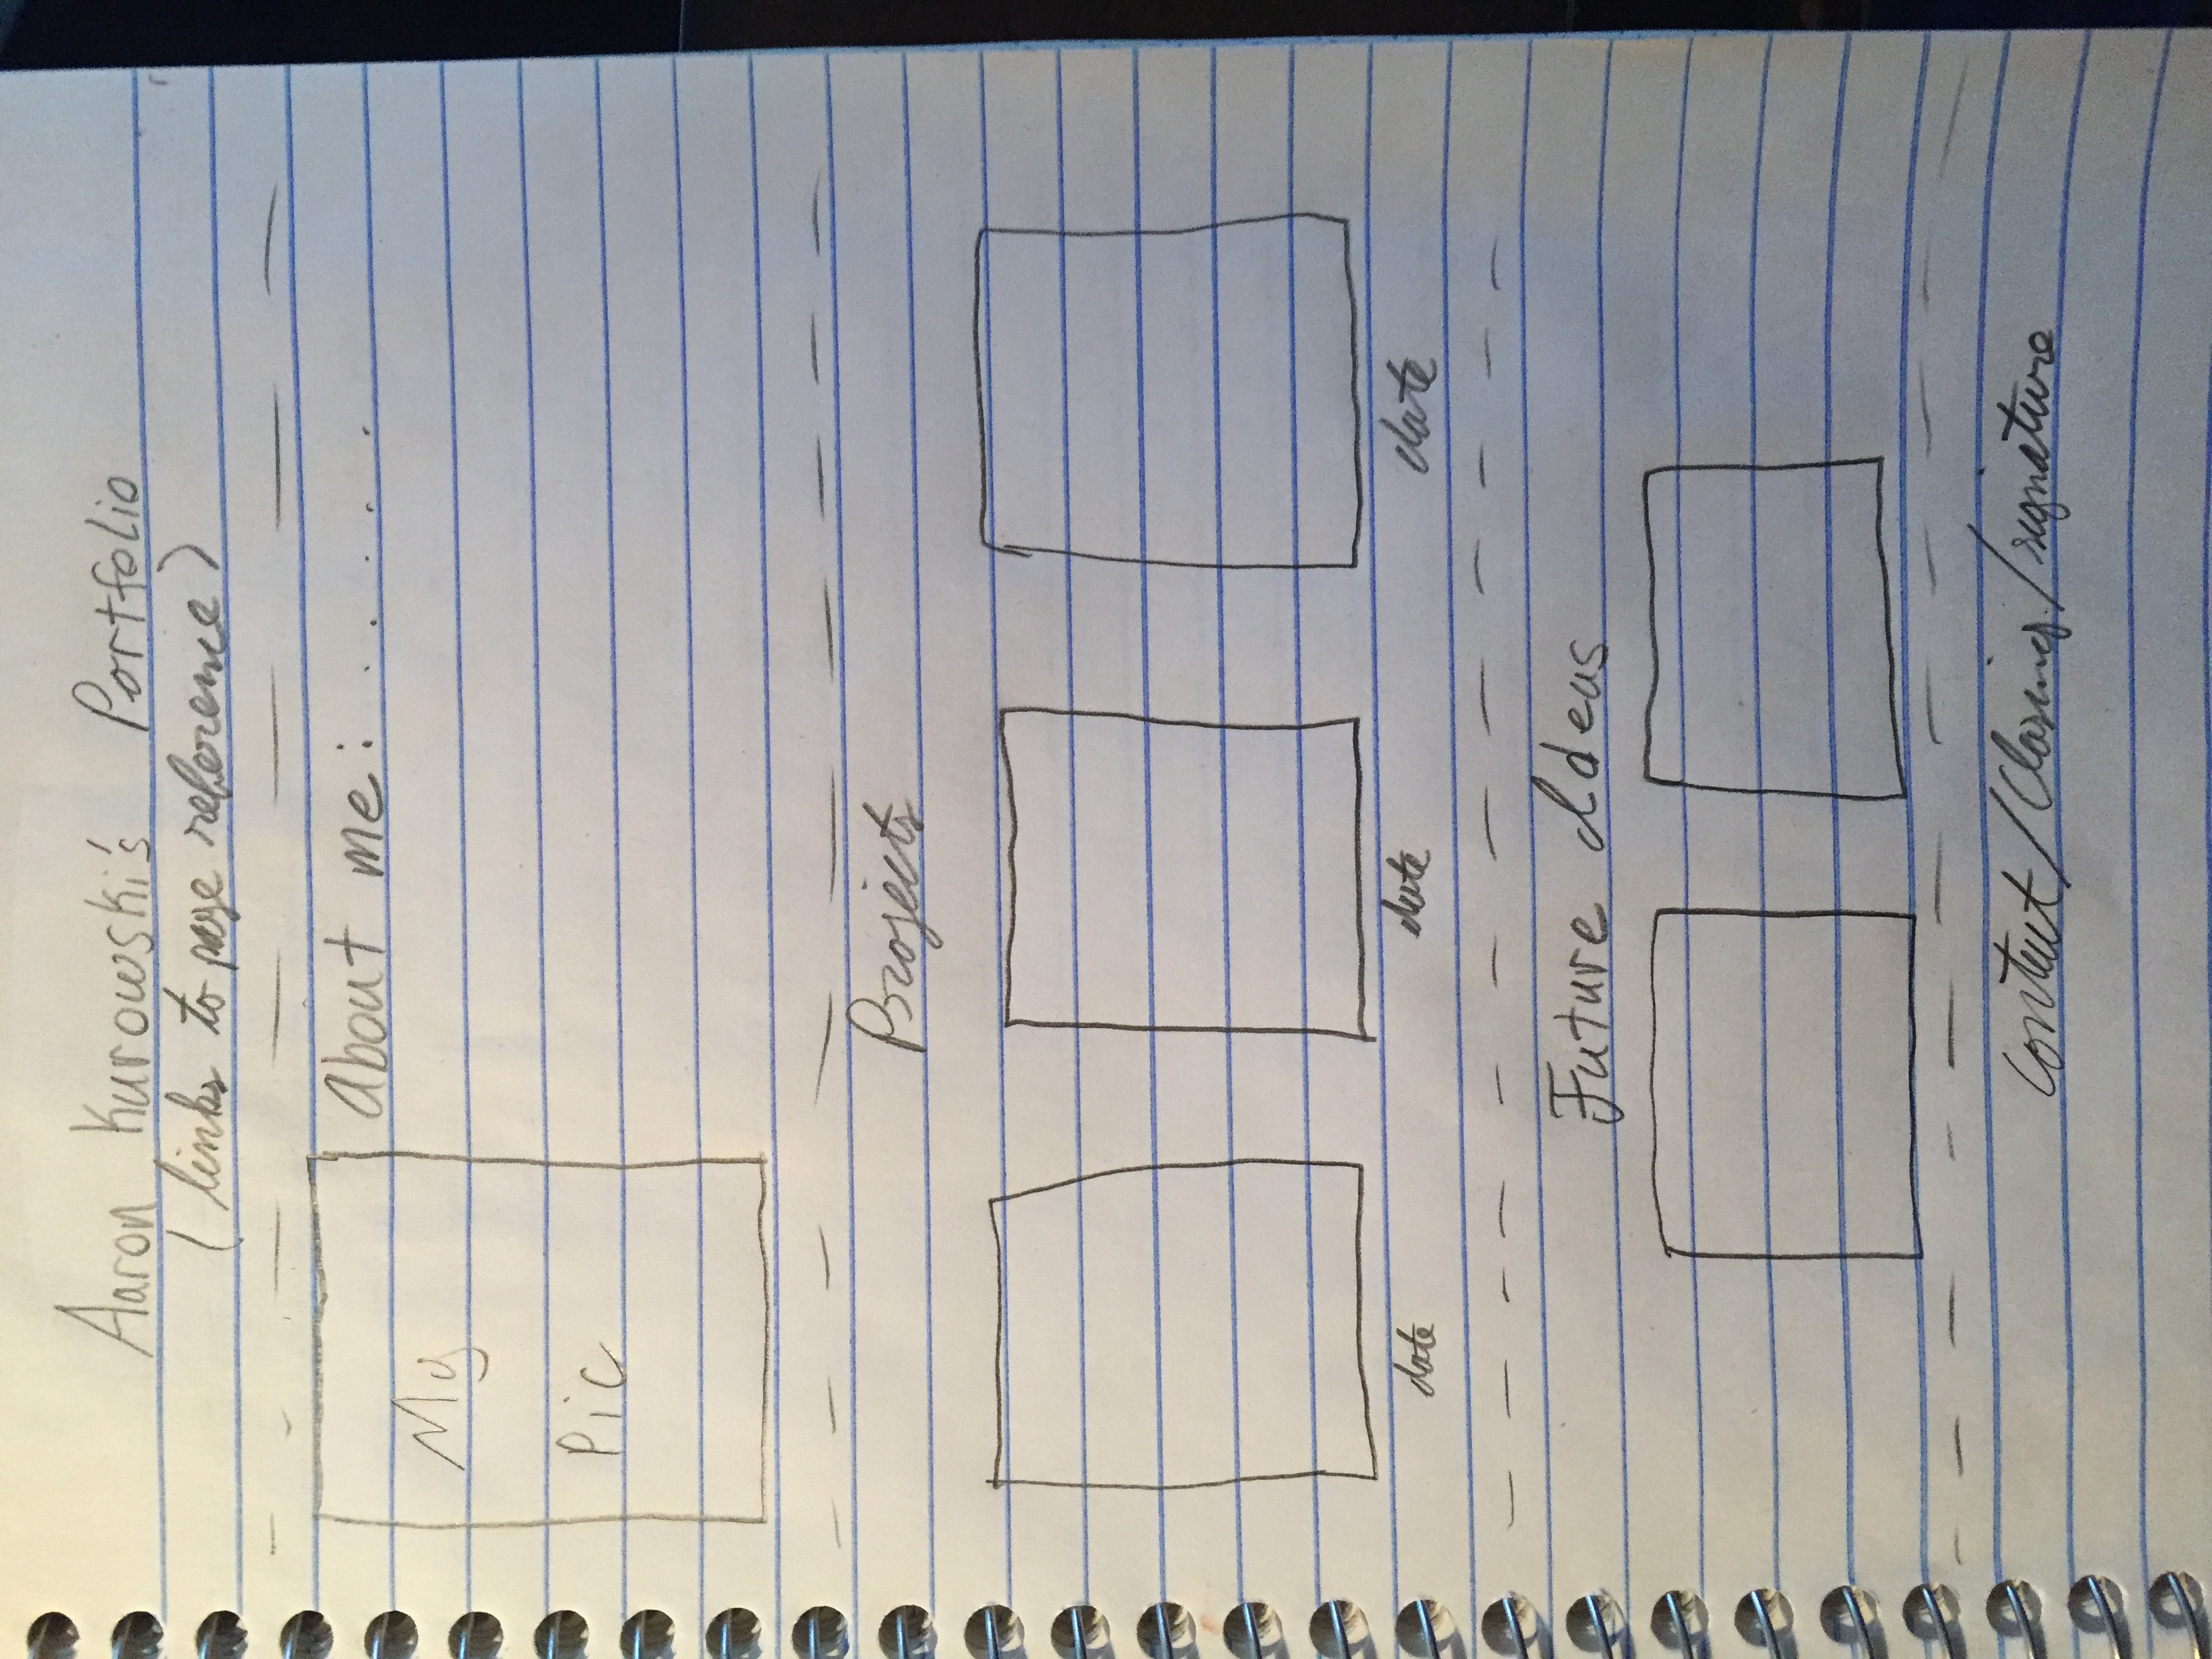 Aaron Kurowski's Portfolio
(links to page reference)
About me: . . . . .
My
Pic
Projects
date date date
Future Ideas
Contact/Closing/signature